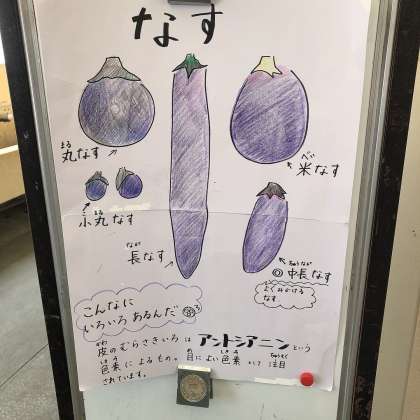 なす
まる
丸なす
べい
米なす
こまる
小丸なす
なが
長なす
ちゅうなが
◎中長なす
よくみかける
なす
こんなに
いろいろあるんだ
かわ
皮のむらさきいろは アントシアニン という
しきそ
色素によるもの。目によい色素として注目
されています。